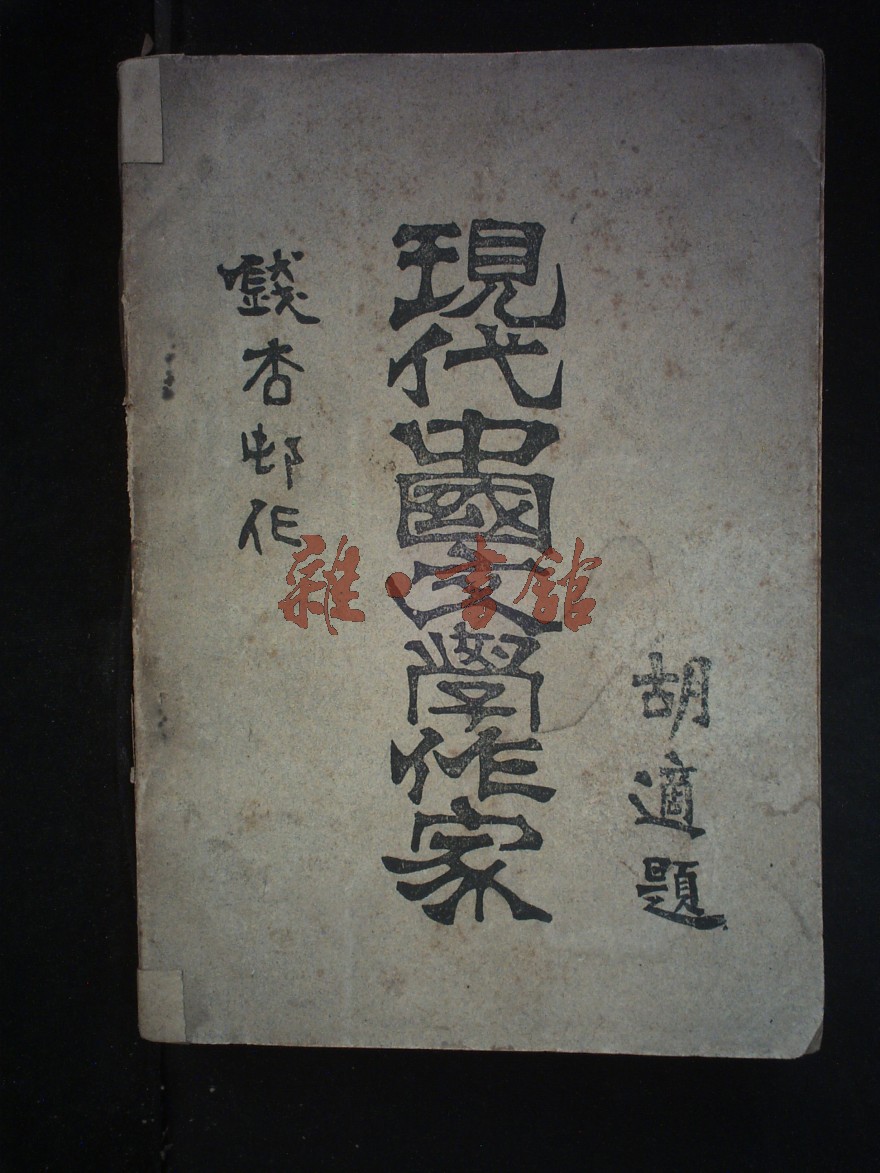 胡適題
現代中國文學作家
錢杏邨作
雜·書館